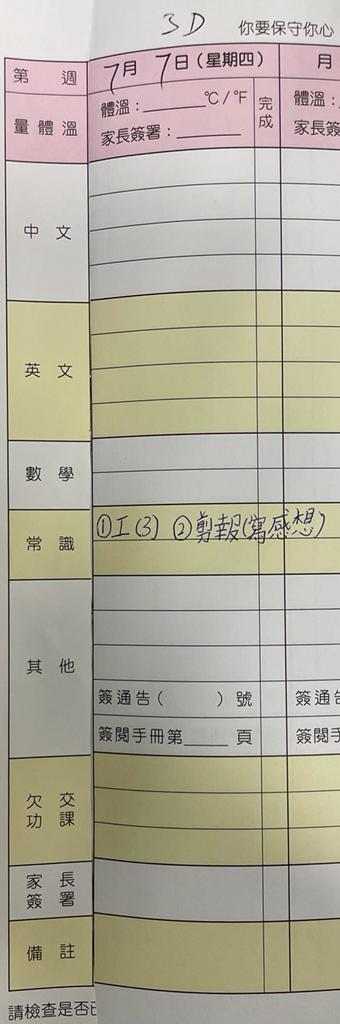 3D 你要保守你心
第 週 7月 7日(星期四) 月
量體溫 體溫：______℃/℉ 完成 體溫：
家長簽署：______ 家長簽
中 文
英 文
數 學
常 識 ①工(3) ②剪報(寫感想)
其 他
簽通告( )號 簽通告
簽閱手冊第____頁 簽閱手
欠 交
功 課
家 長
簽 署
備 註
請檢查是否已